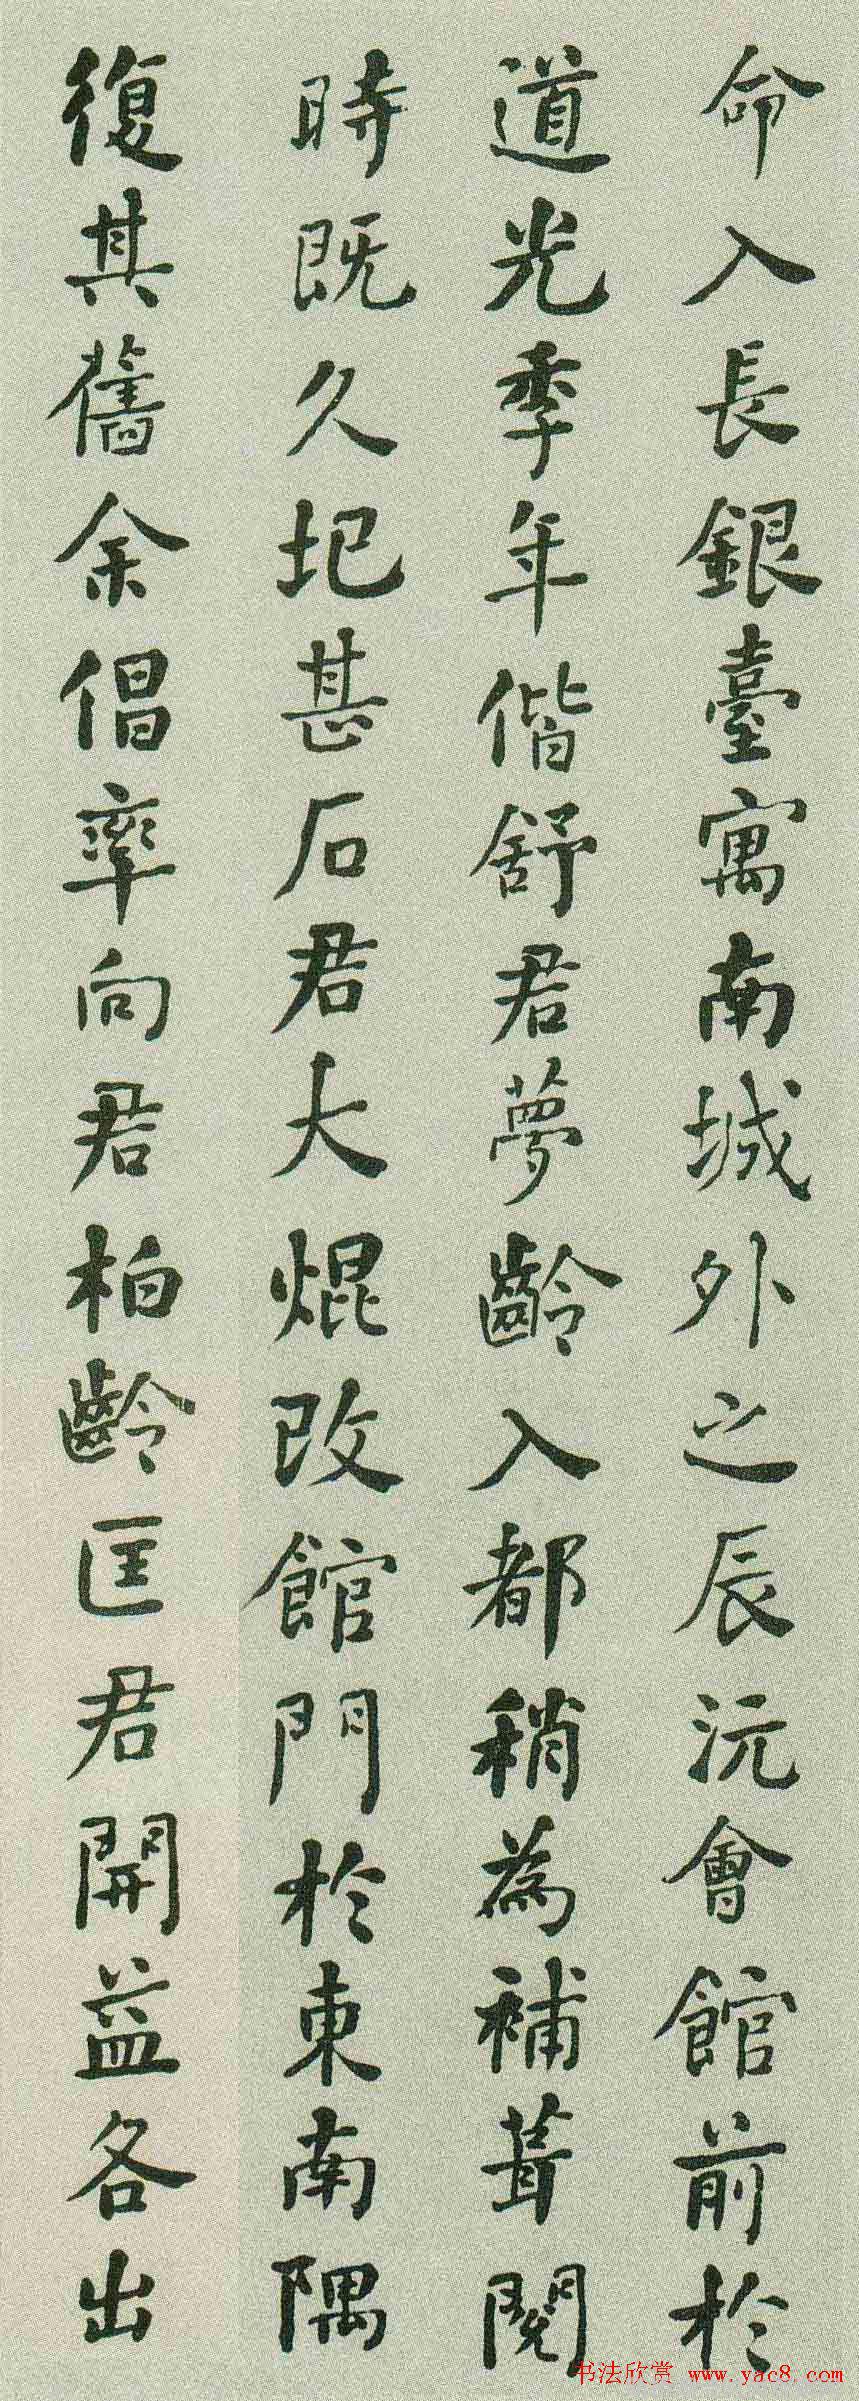 命入長銀臺寓南城外之辰沅會館前於
道光季年偕舒君夢齡入都稍為補葺閱
時既久圮甚石君大焜改館門於東南隅
復其舊余倡率向君柏齡匡君開益各出
书法欣赏 www.yac8.com